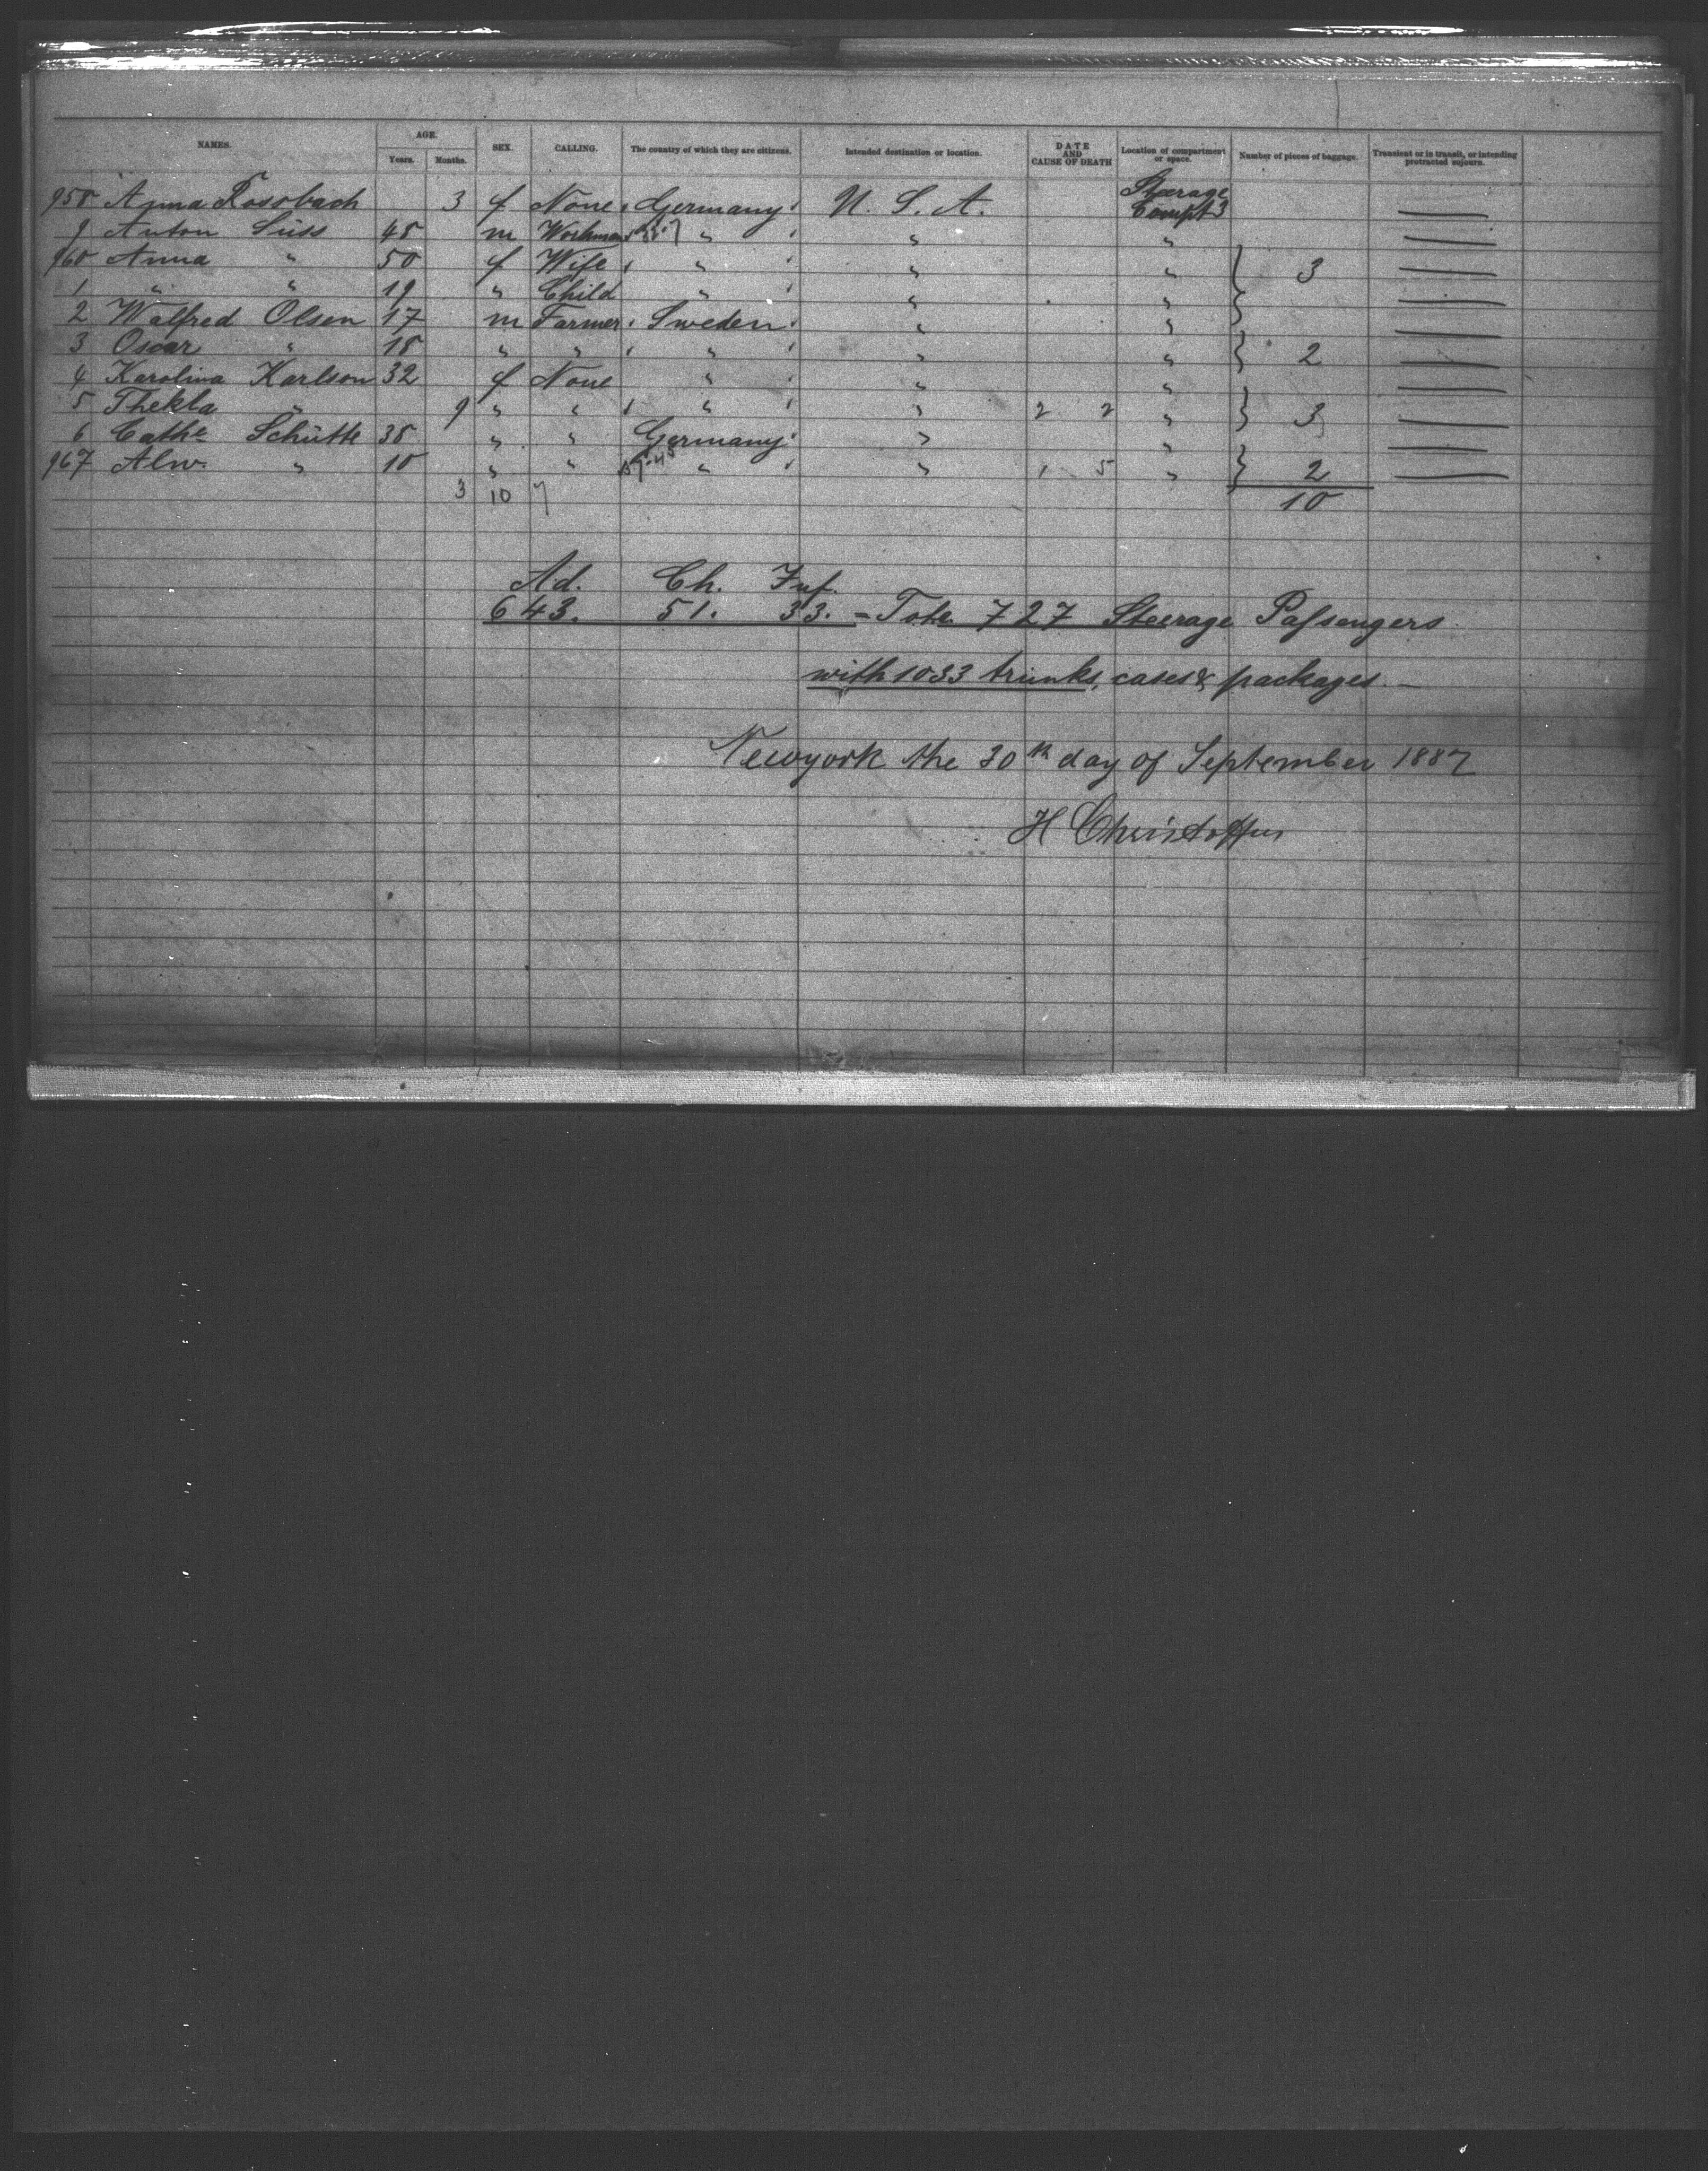 NAMES. AGE. Years. Months. SEX. CALLING. The country of which they are citizens. Intended destination or location. DATE AND CAUSE OF DEATH Location of compartment or space. Number of pieces of baggage. Transient or in transit, or intending protracted sojourn.
958 Anna Rossbach 3 f None Germany U. S. A. Steerage Compt 3 —
9 Anton Süss 45 m Workman " " " —
960 Anna " 50 f Wife " " " } 3 —
1 " " 19 " Child " " " } —
2 Walfred Olsen 17 m Farmer Sweden " " —
3 Oscar " 18 " " " " " } 2 —
4 Karolina Karlson 32 f None " " " —
5 Thekla " 9 " " " " 2 2 " } 3 —
6 Cathe Schütte 38 " " Germany " " —
967 Alw. " 10 " " " " 1 5 " } 2 —
3 10 7 10
Ad. Ch. Inf.
643. 51. 33. = Tote. 727 Steerage Passengers
with 1033 trunks, cases & packages. —
Newyork the 30th day of September 1887
H Christoffers